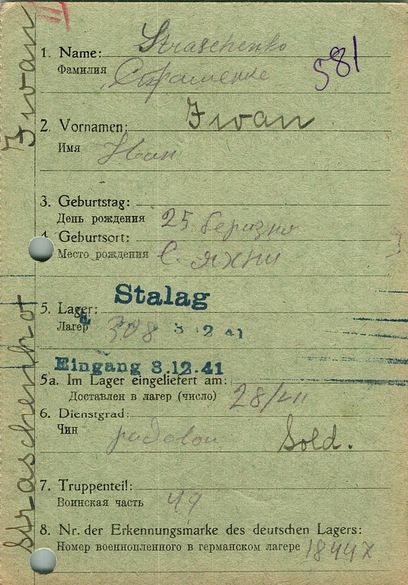 III
1. Name: Straschenko
Фамилия Страшенко
581
2. Vornamen: Iwan
Имя Иван
3. Geburtstag:
День рождения 25 березня
4. Geburtsort:
Место рождения с. яхни
Stalag
5. Lager:
Лагер 308 8 12 41
Eingang 8.12.41
5a. Im Lager eingeliefert am:
Доставлен в лагер (число) 28/VII
6. Dienstgrad:
Чин Sold.
7. Truppenteil:
Воинская часть 49
8. Nr. der Erkennungsmarke des deutschen Lagers:
Номер военнопленного в германском лагере 18447
Straschenko Iwan